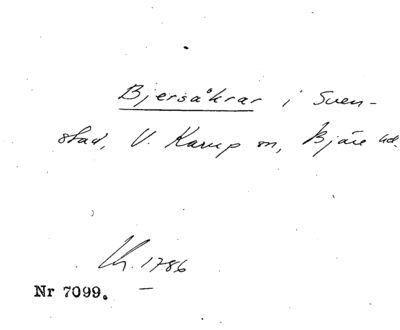 Bjersåkrar i Sven-
stad, V. Karup sn, Bjäre hd.
Lh. 1786
Nr 7099.